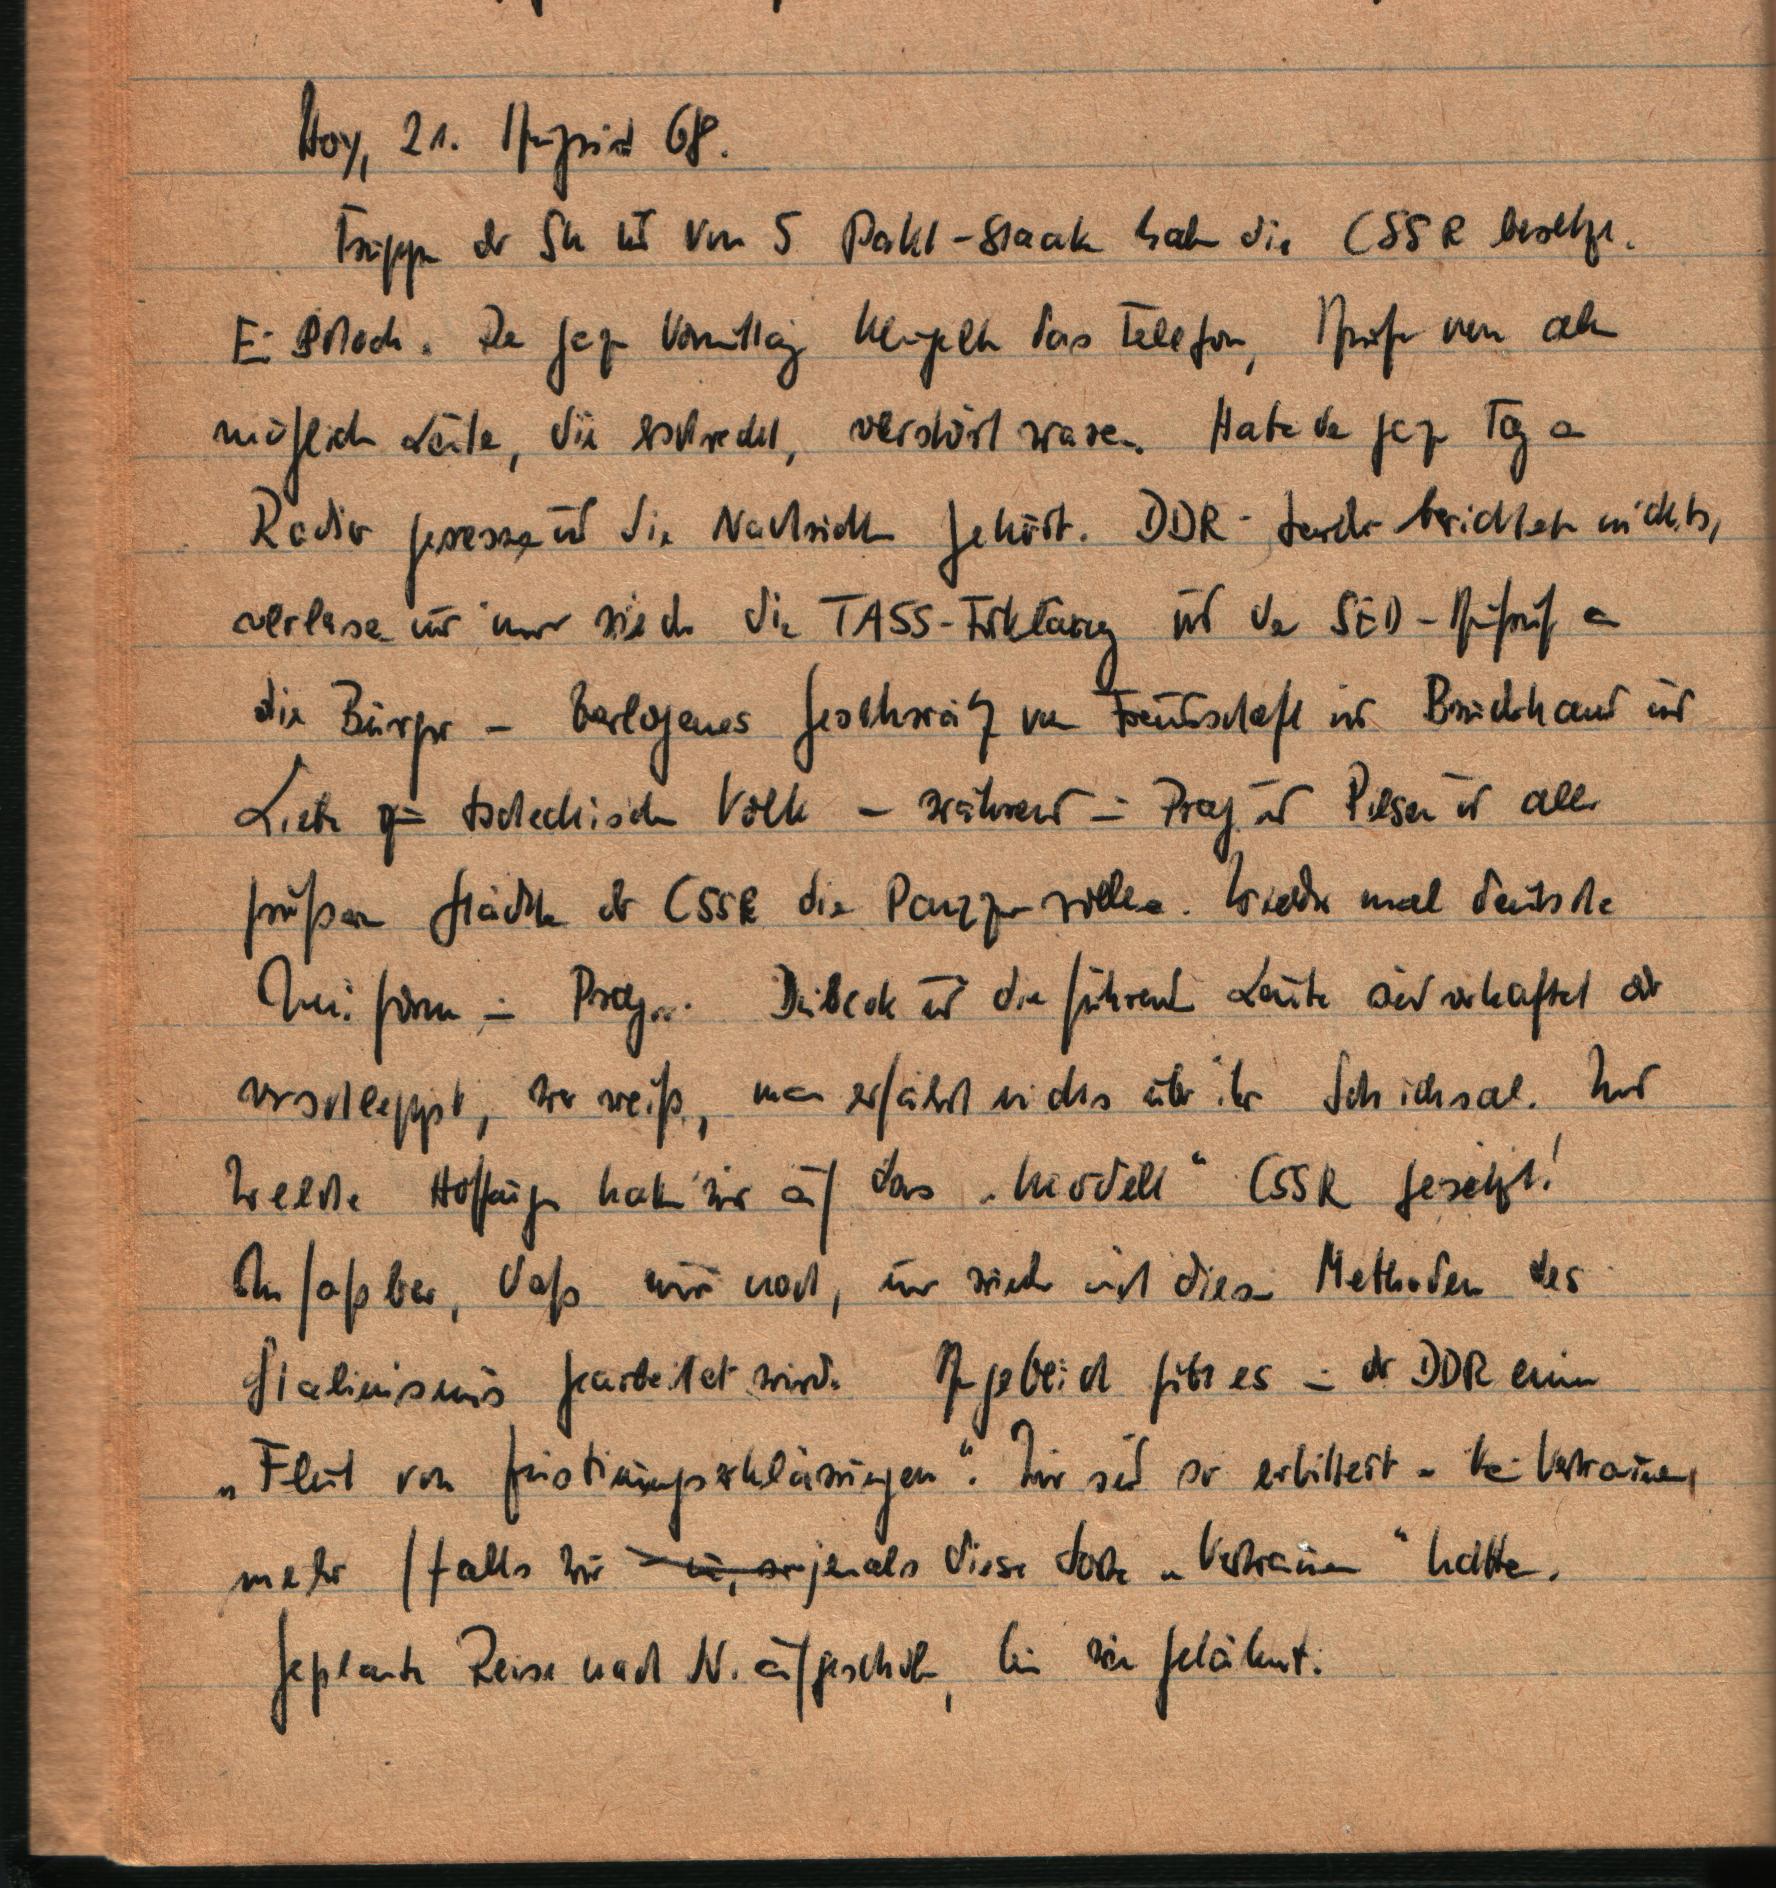 Hoy, 21. August 68.
Truppen der SU und von 5 Pakt-Staaten haben die CSSR besetzt.
Ein Schock. Den ganzen Vormittag klingelte das Telefon, Anrufe von allen
möglichen Leuten, die erschreckt, verstört waren. Habe den ganzen Tag am
Radio gesessen und die Nachrichten gehört. DDR-Sender berichteten nichts,
verlasen nur immer wieder die TASS-Erklärung und den SED-Aufruf an
die Bürger – verlogenes Geschwätz von Freundschaft und Bruderhand und
Liebe zum tschechischen Volk – während in Prag und Pilsen und allen
größeren Städten der CSSR die Panzer rollen. Wieder mal deutsche
Uniformen in Prag... Dubcek und die führenden Leute sind verhaftet oder
verschleppt, wer weiß, man erfährt nichts über ihr Schicksal. Und
welche Hoffnungen haben wir auf das „Modell“ CSSR gesetzt!
Unfaßbar, daß immer noch, immer wieder mit diesen Methoden des
Stalinismus gearbeitet wird. Angeblich gibt es in der DDR eine
„Flut von Zustimmungserklärungen“. Wir sind so erbittert – kein Vertrauen
mehr (falls wir jemals diese Sorte „Vertrauen“ hatten.
Geplante Reise nach N. aufgeschoben, bin wie gelähmt.